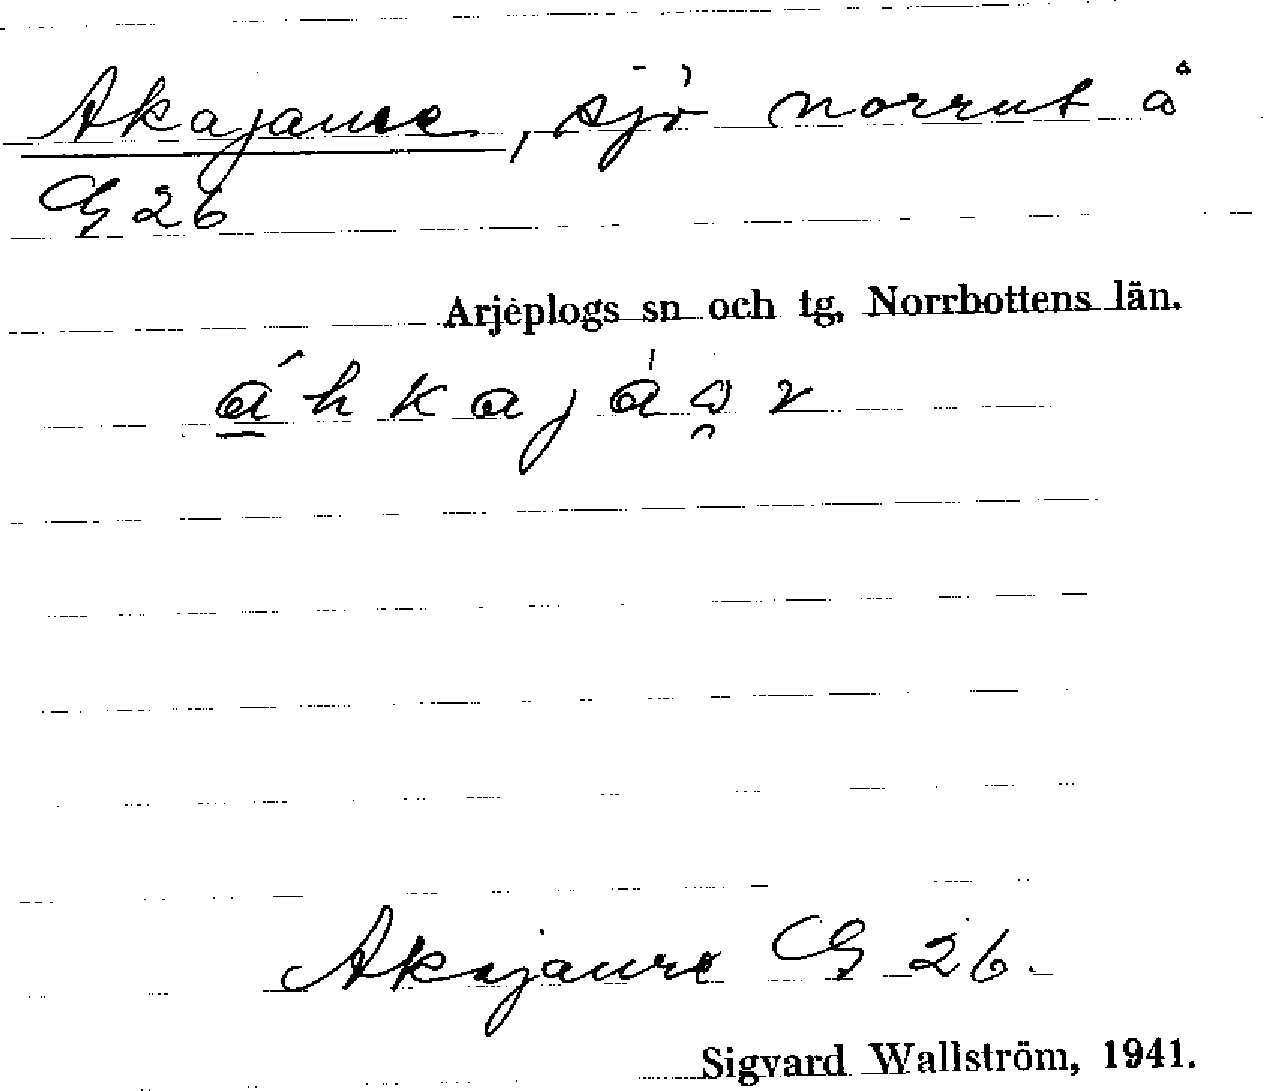 Akajaure, sjö norrut å
G 26
Arjeplogs sn och tg, Norrbottens län.
á̱hkajáo̯v
Akajaure G 26.
Sigvard Wallström, 1941.